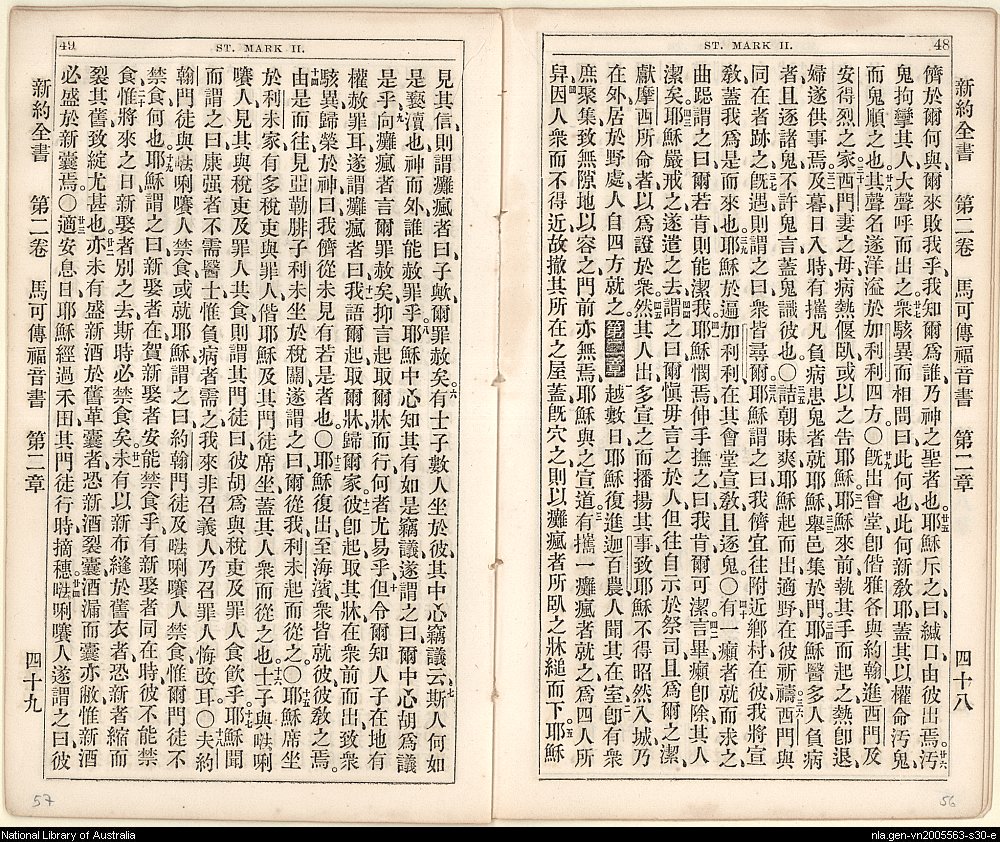 48
ST. MARK II.
新約全書 第二卷 馬可傳福音書 第二章 四十八
儕於爾何與、爾來敗我乎、我知爾爲誰、乃神之聖者也。廿五耶穌斥之曰、緘口由彼出焉。廿六汚
鬼拘攣其人、大聲呼而出之、廿七衆駭異而相問曰、此何也、此何新敎耶、蓋其以權命汚鬼、
而鬼順之也、廿八其聲名遂洋溢於加利利四方。〇廿九旣出會堂、卽偕雅各與約翰、進西門及
安得烈之家、三十西門妻之母病熱偃臥、或以之吿耶穌、三一耶穌來前、執其手而起之、熱卽退、
婦遂供事焉、三二及暮日入時、有攜凡負病患鬼者就耶穌、三三舉邑集於門、三四耶穌醫多人負病
者、且逐諸鬼、不許鬼言、蓋鬼識彼也。〇三五詰朝昧爽、耶穌起而出、適野在彼祈禱、三六西門與
同在者跡之、三七旣遇則謂之曰、衆皆尋爾、三八耶穌謂之曰、我儕宜往附近鄕村、在彼我將宣
敎、蓋我爲是而來也、三九耶穌於遍加利利、在其會堂宣敎、且逐鬼〇四十有一癩者就而求之、
曲跽謂之曰、爾若肯則能潔我、四一耶穌憫焉、伸手撫之曰、我肯、爾可潔、四二言畢癩卽除、其人
潔矣、四三耶穌嚴戒之、遂遣之去、四四謂之曰、爾愼毋言之於人、但往自示於祭司、且爲爾之潔、
獻摩西所命者、以爲證於衆、四五然其人出、多宣之而播揚其事、致耶穌不得昭然入城、乃
在外、居於野處、人自四方就之。第二章 一越數日、耶穌復進迦百農、人聞其在室、二卽有衆
庶聚集、致無隙地以容之、門前亦無焉、耶穌與之宣道、三有攜一癱瘋者就之、爲四人所
舁、四因人衆而不得近、故撤其所在之屋蓋、旣穴之、則以癱瘋者所臥之牀縋而下、五耶穌
56
49
ST. MARK II.
見其信、則謂癱瘋者曰、子歟、爾罪赦矣。六有士子數人坐於彼、其中心竊議云、七斯人何如
是褻瀆也、神而外誰能赦罪乎、八耶穌中心知其有如是竊議、遂謂之曰、爾中心胡爲議
是乎、九向癱瘋者言爾罪赦矣、抑言起取爾牀而行、何者尤易乎、十但令爾知人子在地有
權赦罪耳、遂謂癱瘋者曰、十一我語爾起、取爾牀歸爾家、十二彼卽起、取其牀、在衆前而出、致衆
駭異、歸榮於神曰、我儕從未見有若是者也〇十三耶穌復出至海濱、衆皆就彼、彼敎之焉。
十四由是而往、見亞勒腓子利未坐於稅關、遂謂之曰、爾從我、利未起而從之。〇十五耶穌席坐
於利未家、有多稅吏與罪人、偕耶穌及其門徒席坐、蓋其人衆而從之也、十六士子與𠵽唎
㘔人、見其與稅吏及罪人共食、則謂其門徒曰、彼胡爲與稅吏及罪人食飮乎、十七耶穌聞
而謂之曰、康强者不需醫士、惟負病者需之、我來非召義人、乃召罪人悔改耳。〇十八夫約
翰門徒與𠵽唎㘔人禁食、或就耶穌謂之曰、約翰門徒及𠵽唎㘔人禁食、惟爾門徒不
禁食、何也、十九耶穌謂之曰、新娶者在、賀新娶者安能禁食乎、有新娶者同在時、彼不能禁
食、二十惟將來之日、新娶者別之去、斯時必禁食矣、廿一未有以新布縫於舊衣者、恐新者縮而
裂其舊、致綻尤甚也、廿二亦未有盛新酒於舊革囊者、恐新酒裂囊、酒漏而囊亦敝、惟新酒
必盛於新囊焉。〇廿三適安息日、耶穌經過禾田、其門徒行時摘穗、廿四𠵽唎㘔人遂謂之曰、彼
新約全書 第二卷 馬可傳福音書 第二章 四十九
57
National Library of Australia
nla.gen-vn2005563-s30-e